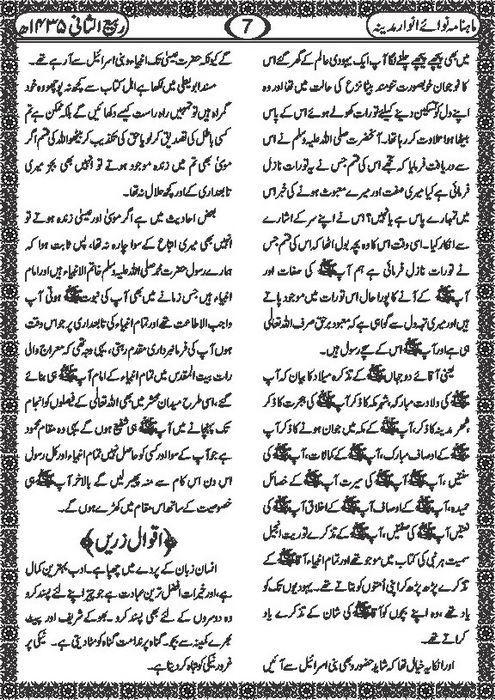 ماہنامہ نوائے انوار مدینہ
7
ربیع الثانی ۱۴۳۵ھ
میں بھی پیچھے پیچھے چلنے لگا آپ ایک یہودی عالم کے گھر گئے اس
کا نوجوان خوبصورت تنومند بیٹا نزع کی حالت میں تھا اور وہ
اپنے دل کو تسکین دینے کیلئے تورات کھولے ہوئے اس کے پاس
بیٹھا ہوا تلاوت کر رہا تھا۔ آنحضرت صلی اللہ علیہ وسلم نے اس
سے دریافت فرمایا کہ تجھے اس کی قسم جس نے یہ تورات نازل
فرمائی ہے کیا میری صفت اور میرے مبعوث ہونے کی خبر اس
میں تمہارے پاس ہے یا نہیں؟ اس نے اپنے سر کے اشارے
سے انکار کیا۔ اسی وقت اس کا وہ بچہ بول اٹھا کہ اس کی قسم جس
نے تورات نازل فرمائی ہے ہم آپ ﷺ کی صفات اور
آپ ﷺ کے آنے کا پورا حال اس تورات میں موجود پاتے
ہیں اور میری تہہ دل سے گواہی ہے کہ معبود برحق صرف اللہ تعالیٰ
ہی ہے اور آپ ﷺ اس کے سچے رسول ہیں۔
یعنی آقائے دو جہاں ﷺ کے تذکرہ میلاد کا بیان کہ آپ
ﷺ کی ولادت مبارکہ، شہر مکہ کا ذکر، آپ ﷺ کی ہجرت کا ذکر
شہر مدینہ کا ذکر، آپ ﷺ کے مکہ میں جوان ہونے کا ذکر آپ
ﷺ کے اوصاف مبارک، آپ ﷺ کے کمالات، آپ ﷺ کی
سنتیں، آپ ﷺ کی سیرت آپ ﷺ کے خصائل
حمیدہ، آپ ﷺ کے اوصاف، آپ ﷺ کے اخلاق آپ ﷺ کی
نعتیں، آپ ﷺ کی صفتیں، آپ ﷺ کے تذکرے توریت انجیل
سمیت ہر نبی کی کتاب میں موجود تھے اور تمام انبیاء آقا ﷺ کے
تذکرے پڑھ پڑھ کر اپنی اُمتوں کو بتاتے تھے۔ یہودیوں تک کو
یاد تھے، وہ اپنے بچوں کو آقا ﷺ کی شان کے تذکرے یاد
کراتے تھے۔
اور انکا یہ خیال تھا کہ شاید حضور وہ بھی بنی اسرائیل سے آئیں
گے کیونکہ حضرت عیسیٰ تک انبیاء وہ بنی اسرائیل سے آ رہے تھے۔
مسند ابو یعلیٰ میں لکھا ہے اہل کتاب سے کچھ نہ پوچھو وہ خود
گمراہ ہیں تو تمہیں راہ راست کیسے دکھائیں گے بلکہ ممکن ہے تم
کسی باطل کی تصدیق کر لو یا حق کی تکذیب کر بیٹھو اللہ کی قسم اگر
موسیٰ بھی تم میں زندہ موجود ہوتے تو انہیں بھی بجز میری
تابعداری کے اور کچھ حلال نہ تھا۔
بعض احادیث میں ہے اگر موسیٰ اور عیسیٰ زندہ ہوتے تو
انہیں بھی میری اتباع کے سوا چارہ نہ تھا، پس ثابت ہوا کہ
ہمارے رسول حضرت محمد صلی اللہ علیہ وسلم خاتم الانبیاء ہیں اور امام
انبیاء ہیں، جس زمانے میں بھی آپ کی نبوت ﷺ ہوتی آپ
واجب الاطاعت تھے اور تمام انبیاء کی تابعداری پر جو اس وقت
ہوں آپ کی فرمانبرداری مقدم رہتی، یہی وجہ تھی کہ معراج والی
رات بیت المقدس میں تمام انبیاء کے امام آپ ﷺ ہی بنائے
گئے، اسی طرح میدان محشر میں بھی اللہ تعالیٰ کے فیصلوں کو انجام
تک پہنچانے میں آپ ﷺ ہی شفیع ہوں گے یہی وہ مقام محمود
ہے جو آپ کے سوا اور کسی کو حاصل نہیں تمام انبیاء، اور کل رسول
اس دن اس کام سے منہ پھیر لیں گے بالآخر آپ ﷺ ہی
خصوصیت کے ساتھ اس مقام میں کھڑے ہوں گے۔
﴿اقوال زریں﴾
انسان زبان کے پردے میں چھپا ہے۔ ادب بہترین کمال
ہے، اور خیرات افضل ترین عبادت ہے جو چیز اپنے لئے پسند کرو
وہ دوسروں کے لئے بھی پسند کرو۔ بھوکے شریف اور پیٹ
بھرے کمینہ سے بچو۔ گناہ پر ندامت گناہ کو مٹا دیتی ہے۔ نیکی پر
غرور نیکی کو تباہ کر دیتا ہے۔